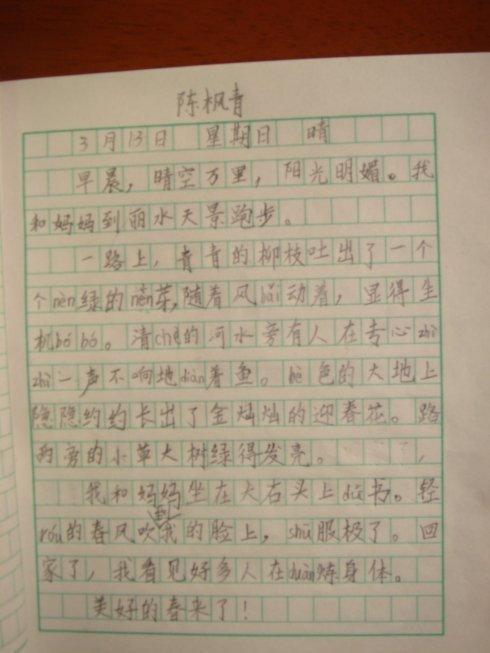 陈枫青
3月13日 星期日 晴
早晨，晴空万里，阳光明媚。我
和妈妈到丽水天景跑步。
一路上，青青的柳枝吐出了一个
个nèn绿的nèn芽，随着风bǎi动着，显得生
机bó bó。清chè的河水旁有人在专心zhì
zhì一声不响地diào着鱼。hè色的大地上
隐隐约约长出了金灿灿的迎春花。路
两旁的小草大树绿得发亮。
我和妈妈坐在大石头上dú书。轻
róu的春风吹我的脸上，shū服极了。回
家了，我看见好多人在duàn炼身体。
美好的春来了！